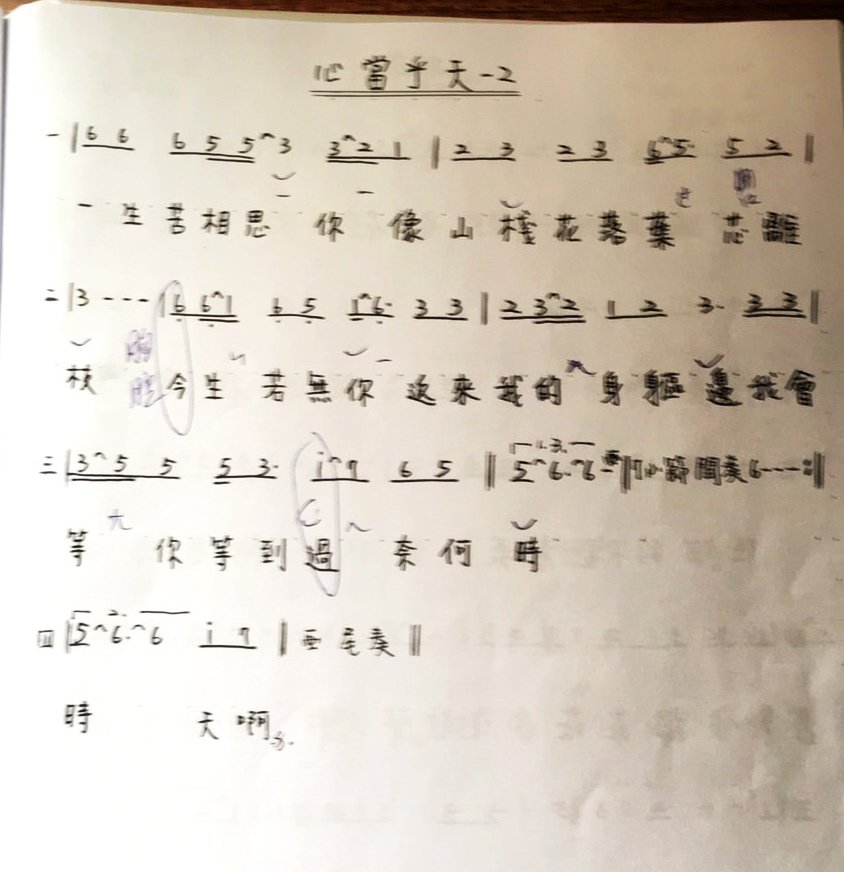 心當乎天-2
一 |6 6 6 5 5^3 3^2 1 | 2 3 2 3 6^5· 5 2 |
一生苦相思 你 像山棧花落葉 芯離
二 |3 - - - |6 6^1 6 5 1^6· 3 3 | 2 3^2 1 2 3· 3 3 |
枝 今生 若無你 返來我的 身軀邊我會
三 |3^5 5 5 3· i^7 6 5 ‖ 5^6·^6- ‖ 間奏6----:‖
1. 3.
等 你等到過 奈何 時
四 |5^6·^6 i 7 ‖ 尾奏 ‖
2.
時 天啊